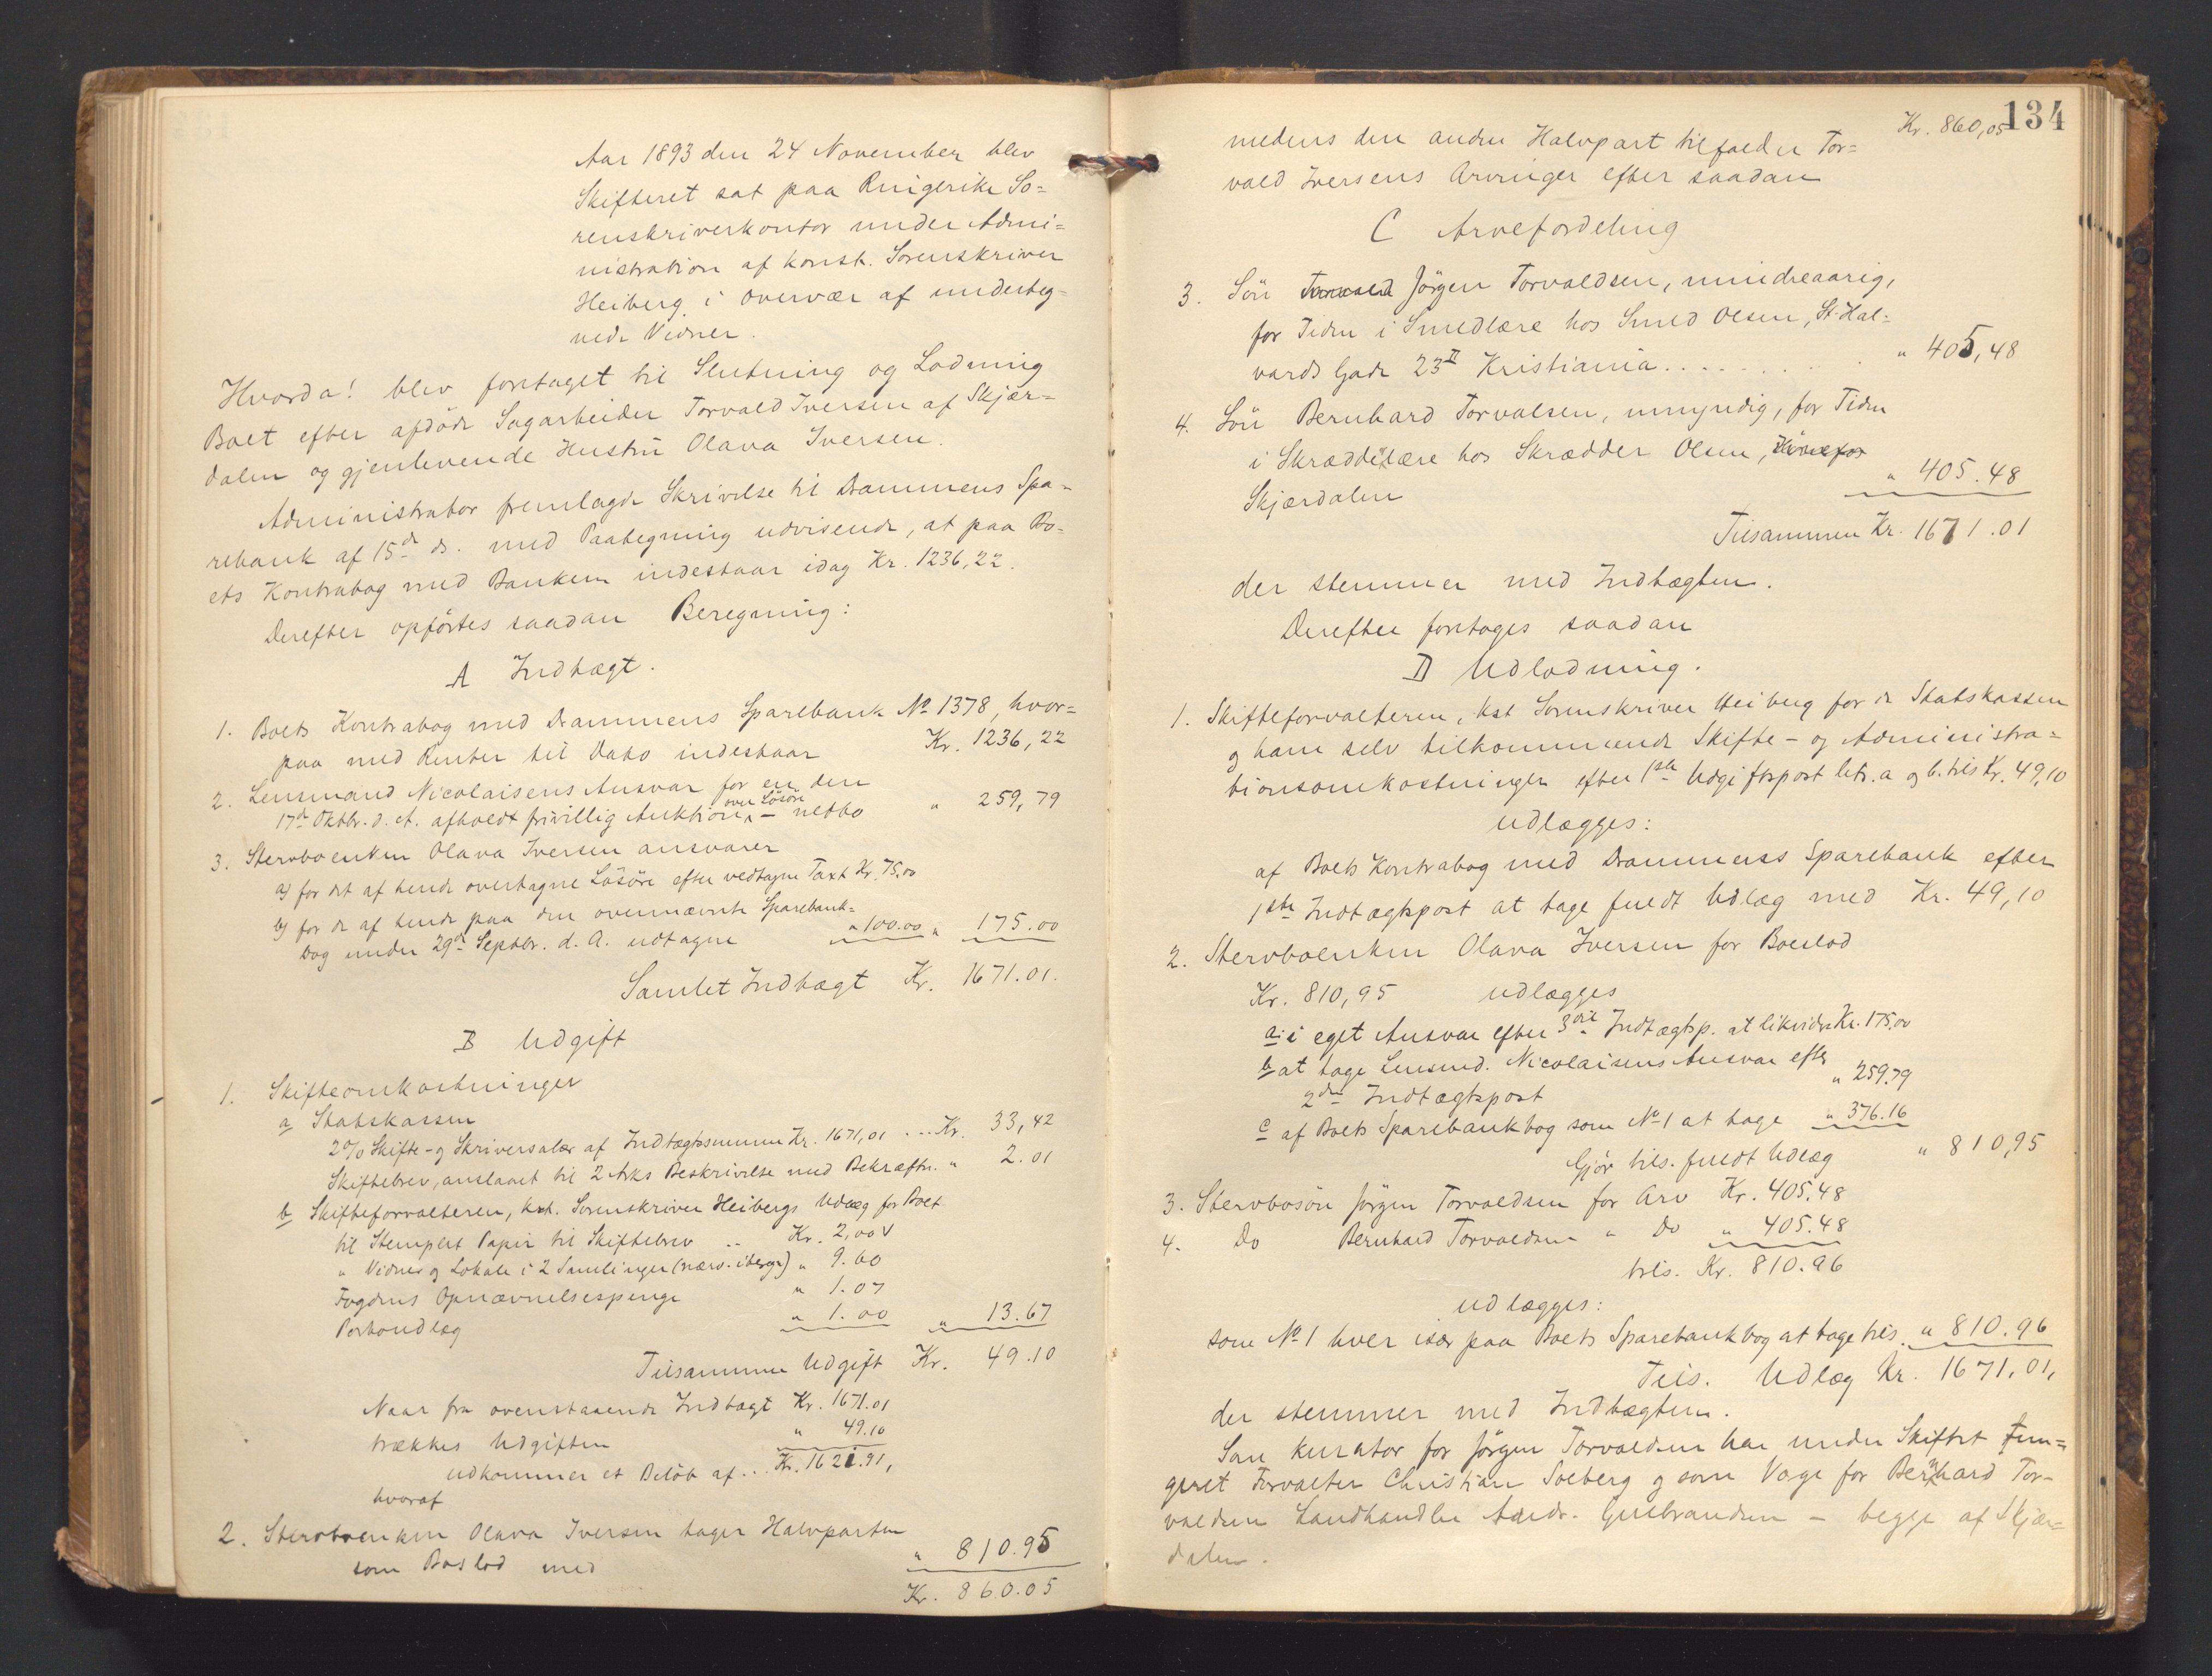 Aar 1893 den 24 November blev
Skifteret sat paa Ringerike So=
renskriverkontor under Admi=
nistration af konst. Sorenskriver
Heiberg i overvær af underteg=
nede Vidner.
Hvorda! blev foretaget til Slutning og Lodning
Boet efter afdöde Sagarbeider Torvald Iversen af Skjær=
dalen og gjenlevende Hustru Olava Iversen.
Administrator fremlagde Skrivelse til Drammens Spa=
rebank af 15de ds. med Paategning udvisende, at paa Bo=
ets Kontrabog med Banken indestaar idag Kr. 1236,22.
Derefter opförtes saadan Beregning:
A Indtægt.
1. Boets Kontrabog med Drammens Sparebank No 1378, hvor=
paa med Renter til Dato indestaar Kr. 1236,22
2. Lensmand Nicolaisens Ansvar for en den
17de Oktbr. d. A. afholdt frivillig Auktion over Lösöre – netto " 259,79
3. Stervboenken Olava Iversen ansvarer
a) for det af hende overtagne Lösöre efter vedtagne Taxt Kr. 75.00
b) for de af hende paa den ovennævnte Sparebank=
bog under 29de Septbr. d. A. udtagne " 100.00 " 175.00
Samlet Indtægt Kr. 1671.01.
B Udgift
1. Skifteomkostninger
a Statskassen
2% Skifte- og Skriversalær af Indtægtssummen Kr. 1671,01 ... Kr. 33,42
Skiftebrev, anslaaet til 2 Arks Beskrivelse med Bekræftn. " 2.01
b Skifteforvalteren, kst. Sorenskriver Heibergs Udlæg for Boet
til Stemplet Papir til Skiftebrev .. Kr. 2,00
" Vidner og Lokale i 2 Samlinger (nærv. iberegn) " 9.60
Fogdens Opnævnelsespenge " 1.07
Portoudlæg " 1.00 " 13.67
Tilsammen Udgift Kr. 49.10
Naar fra ovenstaaende Indtægt Kr. 1671.01
trækkes Udgiften " 49.10
udkommer et Belöb af ... Kr. 1621.91,
hvoraf
2. Stervboenken Olava Iversen tager Halvparten
som Boslod med " 810.95
Kr. 860.05
134
Kr. 860,05
medens den anden Halvpart tilfalder Tor=
vald Iversens Arvinger efter saadan
C Arvefordeling
3. Sön Torvald Jörgen Torvaldsen, mindreaarig,
for Tiden i Smedlære hos Smed Olsen, St. Hal=
vards Gade 23II Kristiania . . . . . . " 405,48
4. Sön Bernhard Torvalsen, umyndig, for Tiden
i Skræddelære hos Skrædder Olsen, Hönefos
Skjærdalen " 405.48
Tilsammen Kr. 1671.01
der stemmer med Indtægten.
Derefter foretoges saadan
D Udlodning.
1. Skifteforvalteren, kst Sorenskriver Heiberg for de Statskassen
og ham selv tilkommende Skifte- og Administra=
tionsomkostninger efter 1ste Udgiftspost litr. a og b. tils Kr. 49,10
udlægges:
af Boets Kontrabog med Drammens Sparebank efter
1ste Indtægtspost at tage fuldt Udlæg med Kr. 49,10
2. Stervboenken Olava Iversen for Boeslod
Kr. 810,95 udlægges
a: i eget Ansvar efter 3die Indtægtsp. at likvidere Kr. 175.00
b at tage Lensmd. Nicolaisens Ansvar efter
2den Indtægtspost " 259.79
c af Boets Sparebankbog som No 1 at tage " 376.16
Gjör tils. fuldt Udlæg " 810,95
3. Stervbosön Jörgen Torvaldsen for Arv Kr. 405.48
4. Do Bernhard Torvaldsen " Do " 405.48
tils. Kr. 810.96
udlægges:
som No 1 hver især paa Boets Sparebankbog at tage tils. " 810.96
Tils. Udlæg Kr. 1671,01,
der stemmer med Indtægten.
Som kurator for Jörgen Torvaldsen har under Skiftet fun=
geret Forvalter Christian Solberg og som Værge for Bernhard Tor-
valdsen Landhandler Andr. Gulbrandsen – begge af Skjær=
dalen.